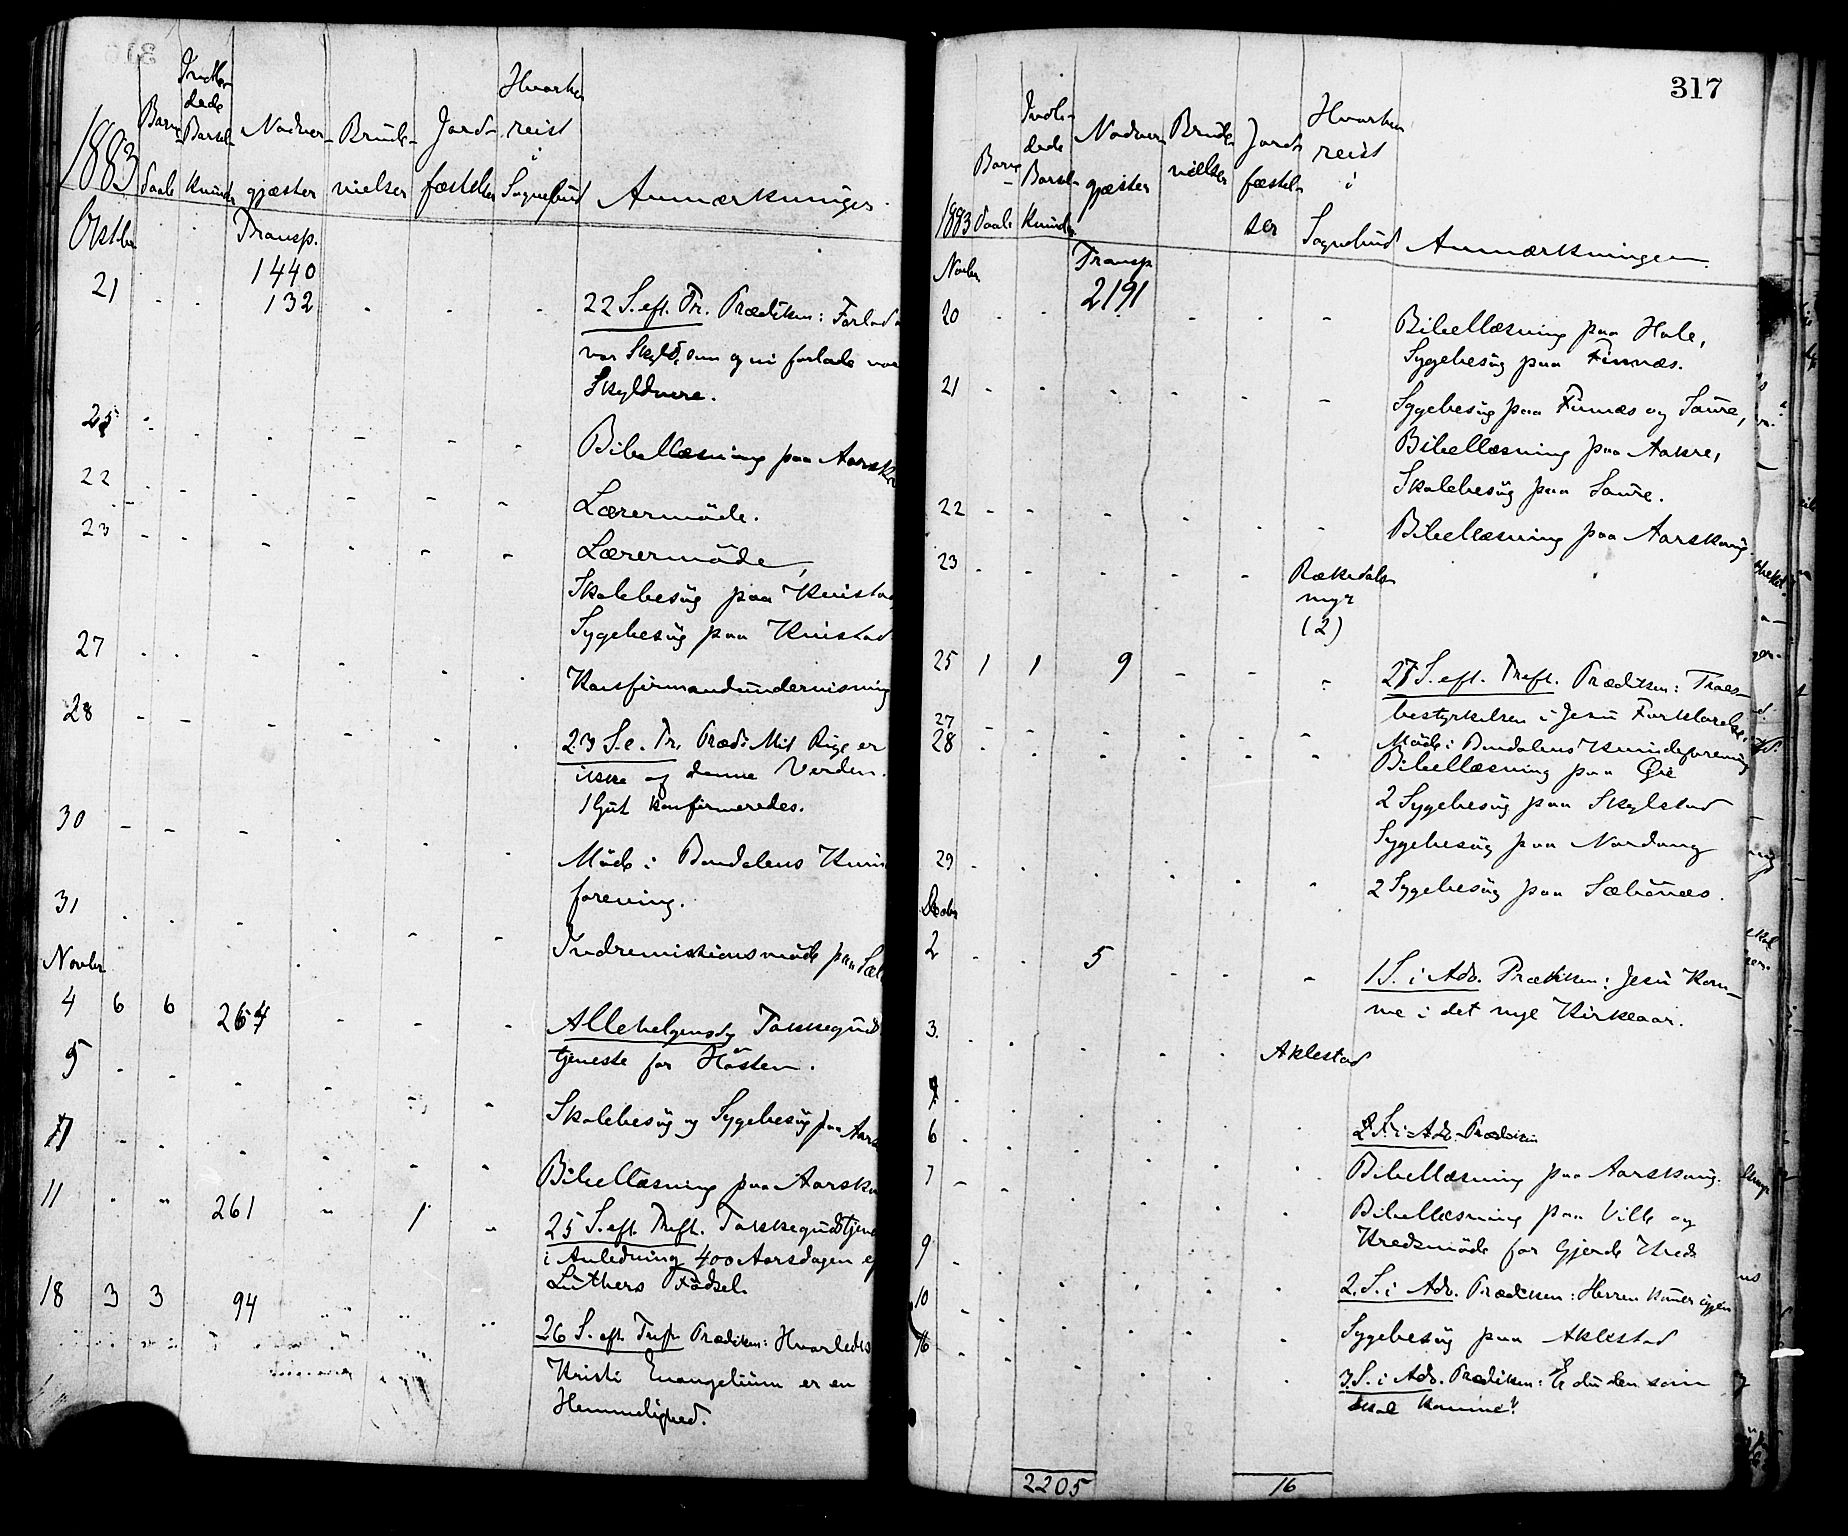 1883 Barne- Indle- Nadver- Brude- Jord- Hvorhen
daab dede gjæster vielser fæstelser reist Anmærkninger.
Barsel- i
kvinder Sognebud
Octbr Transp.
1440
21 - - 132 - - - 22 S. eft. Tr. Prædiken: Forlad os
vor Skyld, som og vi forlade vore
Skyldnere.
25 - - - - - - Bibellæsning paa Aarsk
22 - - - - - - Lærermöde.
23 - - - - - - Lærermöde,
Skolebesög paa Kvistad
Sygebesög paa Kvistad
27 - - - - - - Konfirmandundervisning
28 - - - - - - 23 S. e. Tr. Præd: Mit Rige er
ikke af denne Verden.
1 Gut konfirmeredes.
30 - - - - - - Möde i Bondalens Kvin
forening.
31 - - - - - - Indremissionsmöde paa Sæb
Novbr
4 6 6 264 - - - Allehelgensdg Takkeguds
tjeneste for Hösten.
5 - - - - - - Skolebesög og Sygebesög paa Aars
7 - - - - - - Bibellæsning paa Aarsk
11 - - 261 - 1 - 25 S. eft. Treft. Takkegudstjene
i Anledning 400 Aarsdagen af
Luthers Födsel.
18 3 3 94 - - - 26 S. eft. Treft. Prædiken: Hvorledes
Kristi Evangelium er en
Hemmelighed.
317
1883 Barne- Indle- Nadver- Brude- Jord- Hvorhen
daab dede gjæster vielser fæstel- reist Anmærkninger.
Barsel- ser i
kvinder Sognebud
Novbr Transp
2191
20 - - - - - Bibellæsning paa Hole,
Sygebesög paa Finnæs.
21 - - - - - - Sygebesög paa Finnæs og Saure,
Bibellæsning paa Aakre,
Skolebesög paa Saure.
22 - - - - - - Bibellæsning paa Aarskaug.
23 - - - - - Rækedals
myr
(2)
25 1 1 9 - - - 27 S. eft. Treft. Prædiken: Troes-
bestyrkelsen i Jesu Forklarelse.
27 - - - - - - Möde i Bondalens Kvindeforening
28 - - - - - - Bibellæsning paa Øie
2 Sygebesög paa Skylstad
Sygebesög paa Nordang
29 - - - - - - 2 Sygebesög paa Sæbönæs.
Decbr
2 - - 5 - - - 1 S. i Adv. Prædiken: Jesu Kom-
me i det nye Kirkeaar.
3. - - - - - Aklestad
2 S. i Adv. Prædiken
6 - - - - - - Bibellæsning paa Aarskaug.
7 - - - - - - Bibellæsning paa Ville og
Kredsmöde for Gjerde Kreds
9 - - - - - - 2. S. i Adv. Prædiken: Herren komer igjen
10 - - - - - - Sygebesög paa Aklestad
16 - - - - - - 3. S. i Adv. Prædiken: Er du den som
skal komme?
2205 16